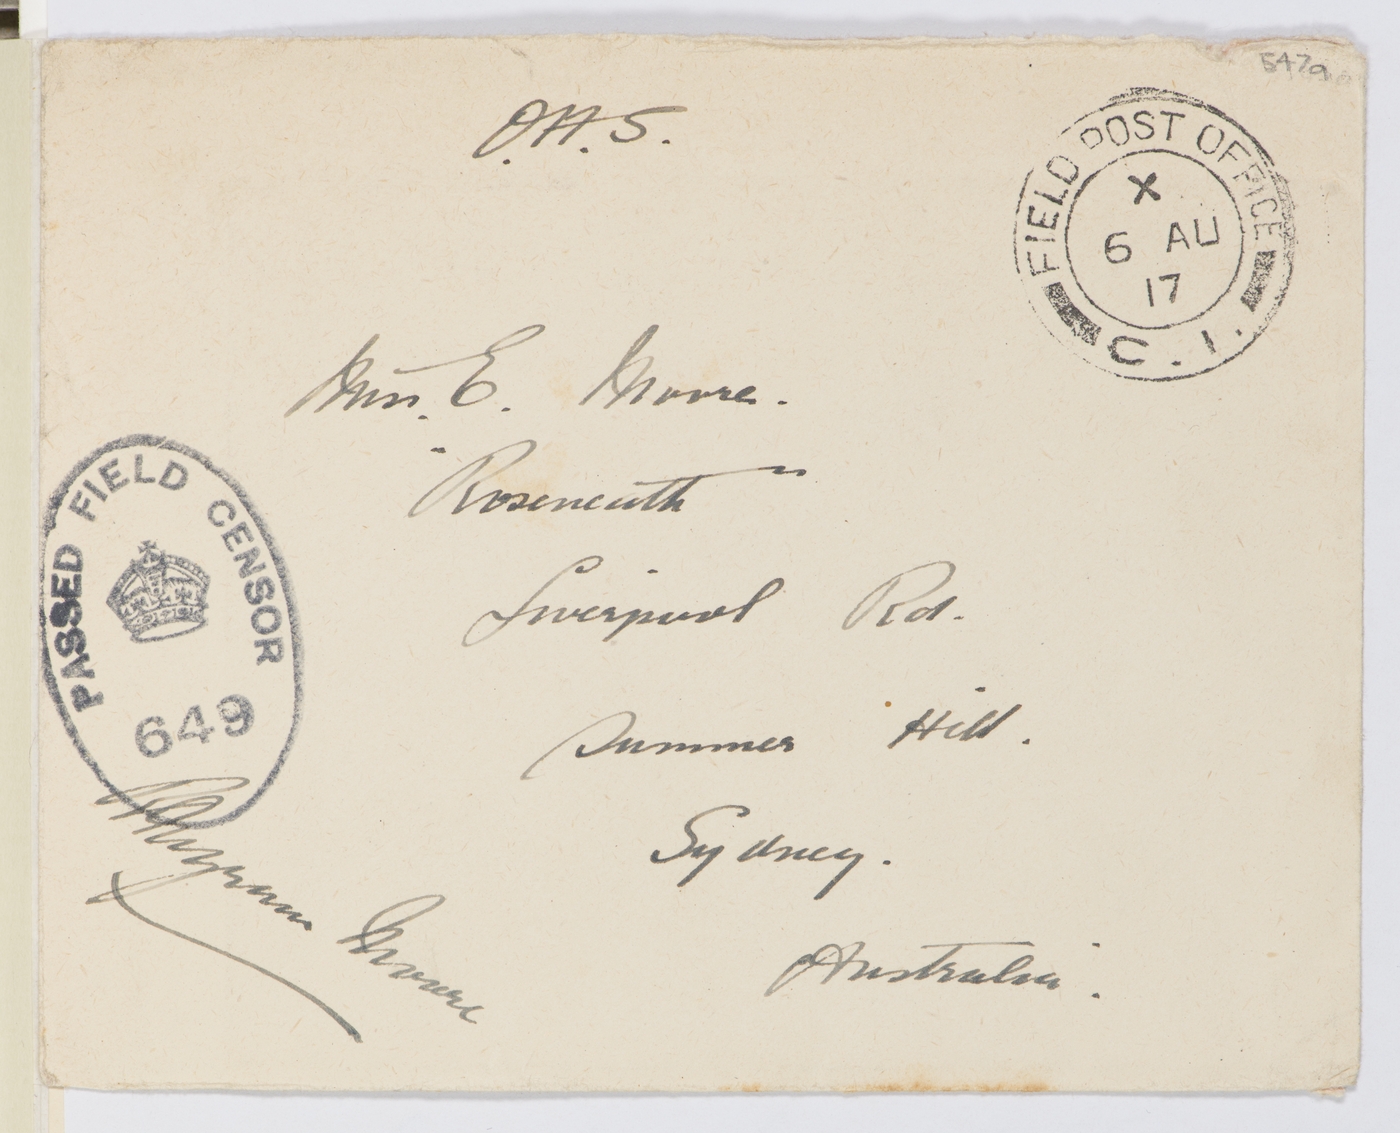 547a
O.H.S.
FIELD POST OFFICE
X
6 AU
17
C.I.
Mrs. E. Moore.
"Roseneath"
Liverpool Rd.
Summer Hill.
Sydney.
Australia.
PASSED FIELD CENSOR
649
Moore